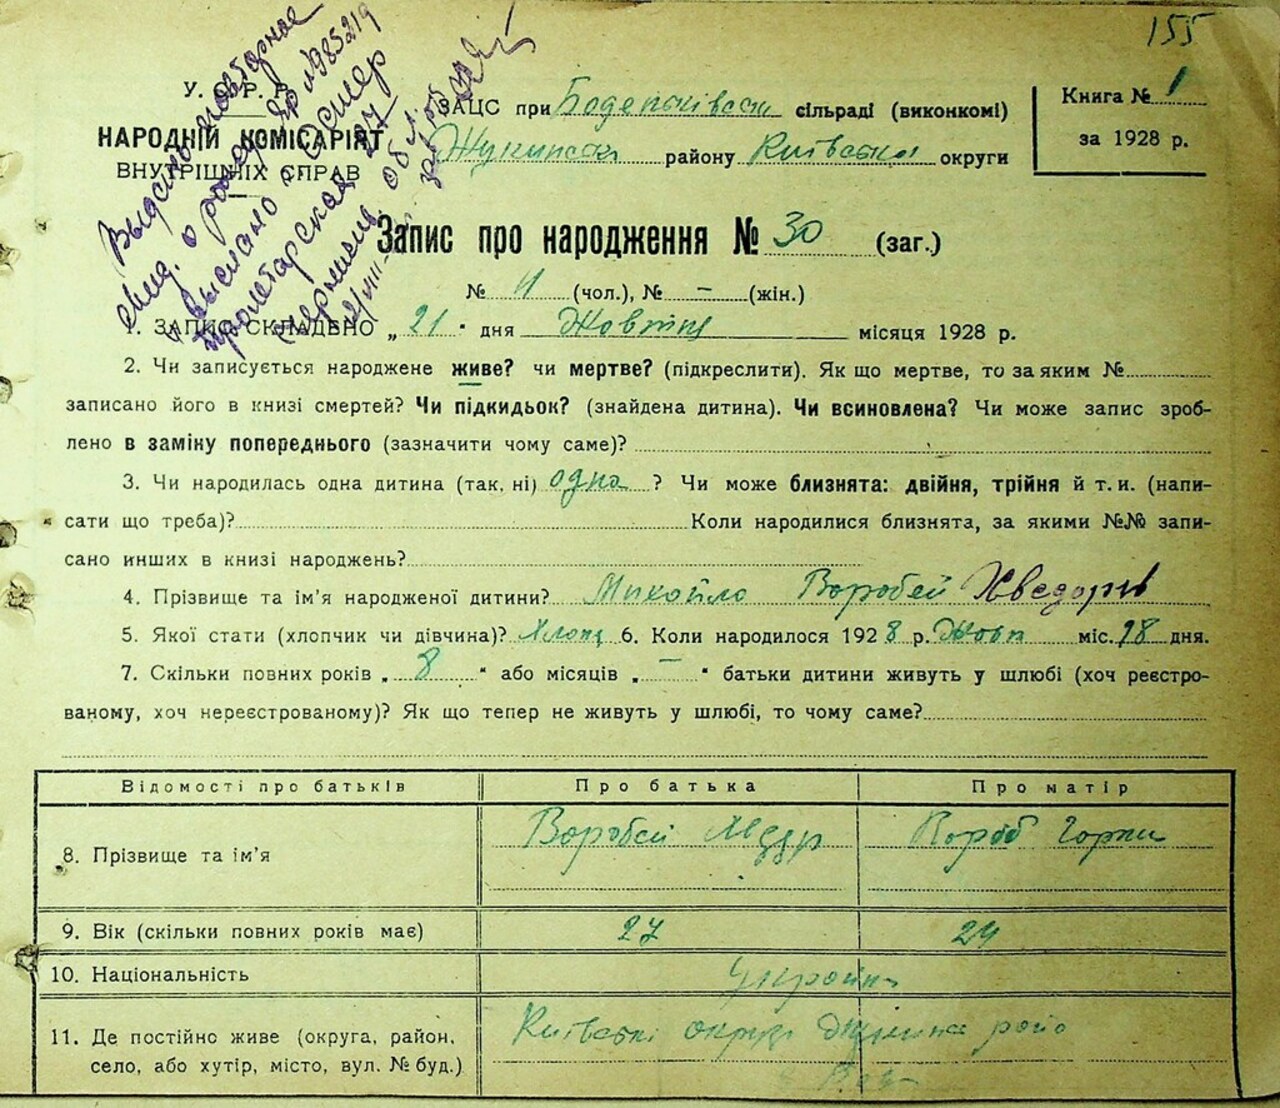 155
У. С. Р. Р.
НАРОДНІЙ КОМІСАРІЯТ
ВНУТРІШНІХ СПРАВ
ЗАЦС при сільраді (виконкомі)
району Київська округи
Книга № 1
за 1928 р.
Выдано повторное
свид. о рожд. № 985219
и выслано
Пролетарская 27
Запис про народження № 30 (заг.)
№ 11 (чол.), № – (жін.)
1. ЗАПИС СКЛАДЕНО „ 21 " дня Жовтня місяця 1928 р.
2. Чи записується народжене живе? чи мертве? (підкреслити). Як що мертве, то за яким №
записано його в книзі смертей? Чи підкидьок? (знайдена дитина). Чи всиновлена? Чи може запис зроб-
лено в заміну попереднього (зазначити чому саме)?
3. Чи народилась одна дитина (так, ні) одна ? Чи може близнята: двійня, трійня й т. и. (напи-
сати що треба)? Коли народилися близнята, за якими №№ запи-
сано инших в книзі народжень?
4. Прізвище та ім'я народженої дитини? Михайло Воробей Хведорів
5. Якої стати (хлопчик чи дівчина)? Хлопч 6. Коли народилося 1928 р. Жовт міс. 18 дня.
7. Скільки повних років „ 8 " або місяців „ – " батьки дитини живуть у шлюбі (хоч реєстро-
ваному, хоч нереєстрованому)? Як що тепер не живуть у шлюбі, то чому саме?
Відомості про батьків Про батька Про матір
8. Прізвище та ім'я Воробей
9. Вік (скільки повних років має) 27 24
10. Національність
11. Де постійно живе (округа, район,
село, або хутір, місто, вул. № буд.) округа